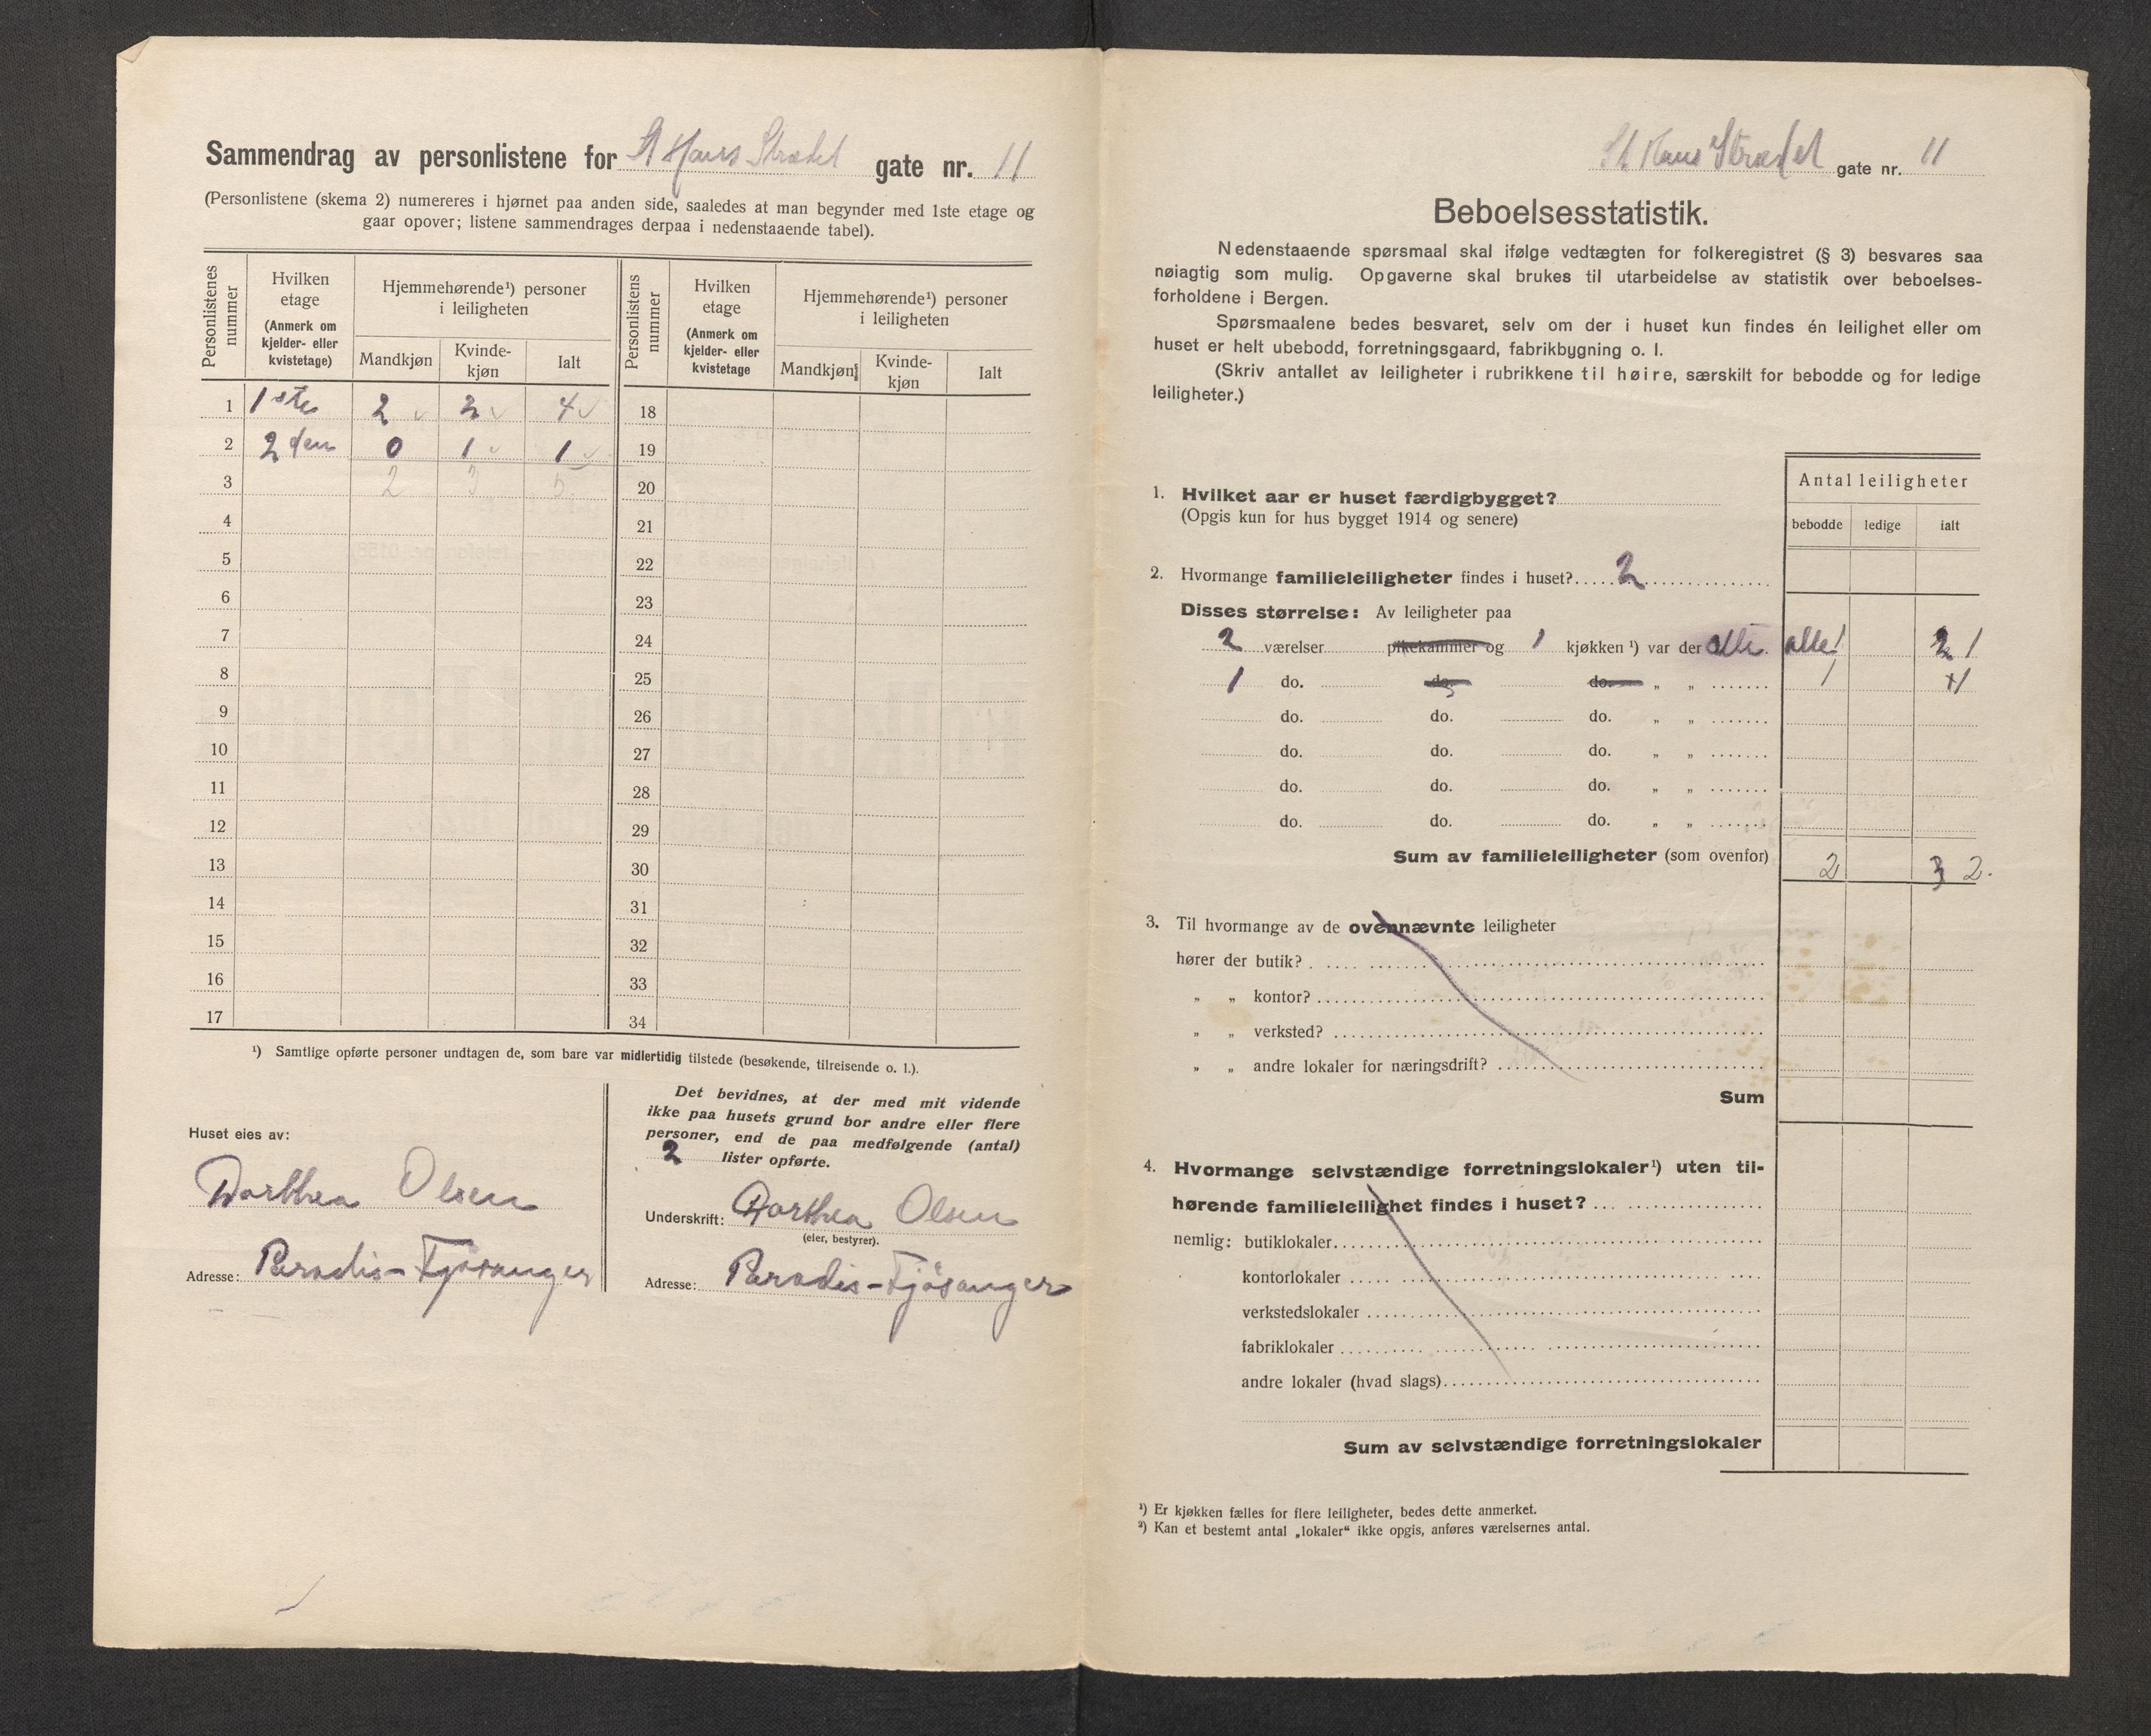 Sammendrag av personlistene for St Hans Strædet gate nr. 11
(Personlistene (skema 2) numereres i hjørnet paa anden side, saaledes at man begynder med 1ste etage og
gaar opover; listene sammendrages derpaa i nedenstaaende tabel).
Personlistenes nummer
Hvilken etage (Anmerk om kjelder- eller kvistetage)
Hjemmehørende¹) personer i leiligheten
Mandkjøn Kvinde-kjøn Ialt
Personlistens nummer
Hvilken etage (Anmerk om kjelder- eller kvistetage
Hjemmehørende¹) personer i leiligheten
Mandkjøn Kvinde-kjøn Ialt
1 1ste 2 2 4 18
2 2den 0 1 1 19
3 2 3 5 20
4 21
5 22
6 23
7 24
8 25
9 26
10 27
11 28
12 29
13 30
14 31
15 32
16 33
17 34
¹) Samtlige opførte personer undtagen de, som bare var midlertidig tilstede (besøkende, tilreisende o. l.).
Huset eies av:
Dorthea Olsen
Adresse: Paradis-Fjøsanger
Det bevidnes, at der med mit vidende
ikke paa husets grund bor andre eller flere
personer, end de paa medfølgende (antal)
2 lister opførte.
Underskrift: Dorthea Olsen
(eier, bestyrer).
Adresse: Paradis-Fjøsanger
St Hans Strædet gate nr. 11
Beboelsesstatistik.
Nedenstaaende spørsmaal skal ifølge vedtægten for folkeregistret (§ 3) besvares saa
nøiagtig som mulig. Opgaverne skal brukes til utarbeidelse av statistik over beboelses-
forholdene i Bergen.
Spørsmaalene bedes besvaret, selv om der i huset kun findes én leilighet eller om
huset er helt ubebodd, forretningsgaard, fabrikbygning o. l.
(Skriv antallet av leiligheter i rubrikkene til høire, særskilt for bebodde og for ledige
leiligheter.)
Antal leiligheter
bebodde ledige ialt
1. Hvilket aar er huset færdigbygget?
(Opgis kun for hus bygget 1914 og senere)
2. Hvormange familieleiligheter findes i huset? 2
Disses størrelse: Av leiligheter paa
2 værelser pikekammer og 1 kjøkken ¹) var der alle. alle 1 2 1
1 do. do. do. „ „ 1 1
do. do. do. „ „
do. do. do. „ „
do. do. do. „ „
do. do. do. „ „
Sum av familieleiligheter (som ovenfor) 2 3 2.
3. Til hvormange av de ovennævnte leiligheter
hører der butik?
„ „ kontor?
„ „ verksted?
„ „ andre lokaler for næringsdrift?
Sum
4. Hvormange selvstændige forretningslokaler¹) uten til-
hørende familieleilighet findes i huset?
nemlig: butiklokaler
kontorlokaler
verkstedslokaler
fabriklokaler
andre lokaler (hvad slags)
Sum av selvstændige forretningslokaler
¹) Er kjøkken fælles for flere leiligheter, bedes dette anmerket.
²) Kan et bestemt antal „lokaler“ ikke opgis, anføres værelsernes antal.